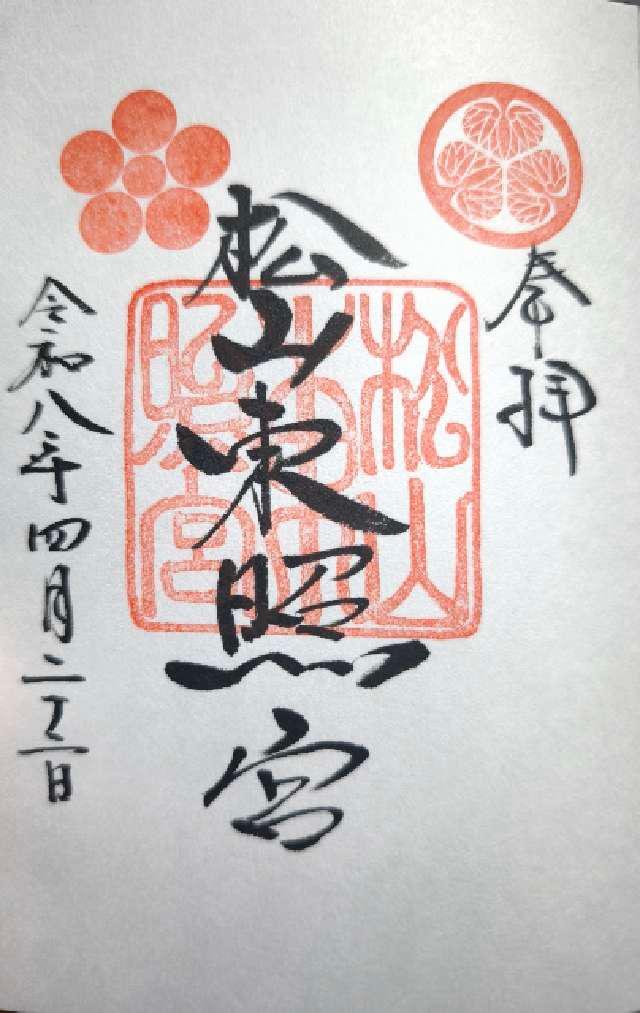 奉拝
松山東照宮
松山東照宮
令和八年四月二十二日